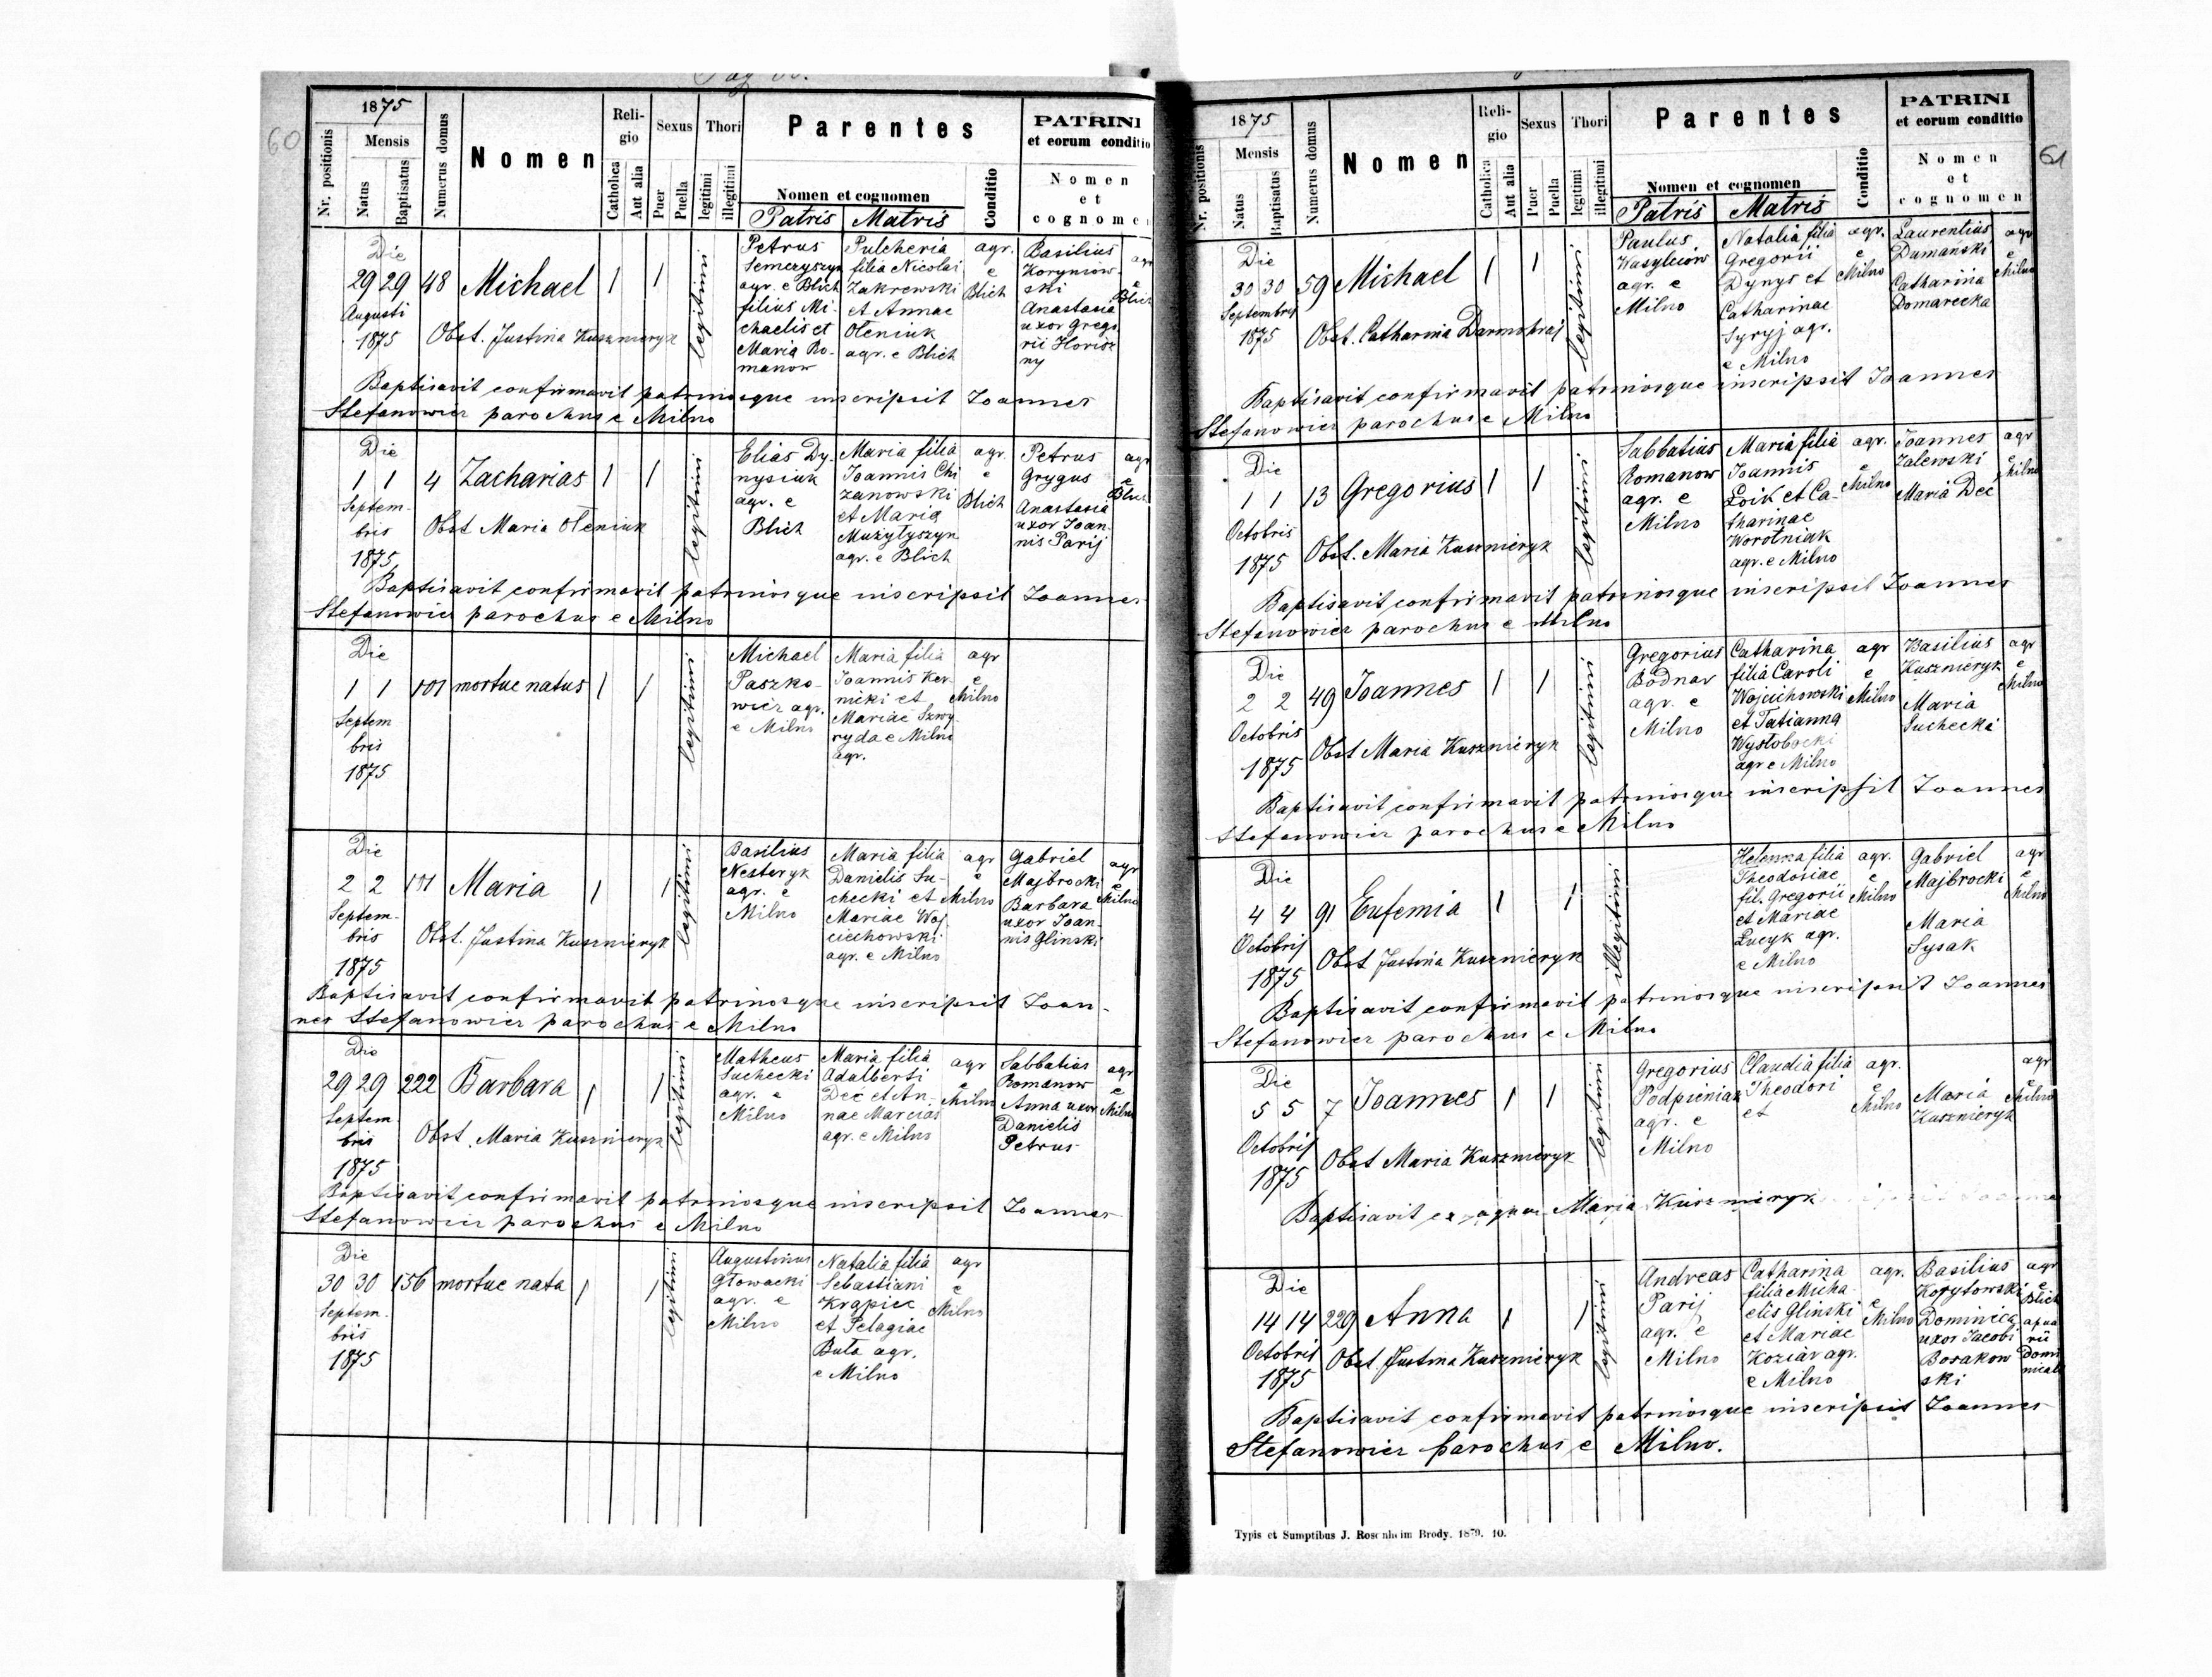 60
1875
Nr. positionis
Mensis
Natus
Baptisatus
Numerus domus
Nomen
Religio
Catholica
Aut alia
Sexus
Puer
Puella
Thori
legitimi
illegitimi
Parentes
Nomen et cognomen
Patris
Matris
Conditio
PATRINI
et eorum conditio
Nomen
et
cognomen
Die
29 29 48 Michael 1 1 legitimi
Augusti
1875
Obst. Justina Kusznieryk
Petrus
Semczyszyn
agr. e Blich
filius Mi-
chaelis et
Maria Ro-
manow
Pulcheria
filia Nicolai
Zakrewski
et Annae
Oleniuk
agr. e Blich
agr.
e
Blich
Basilius
Korynow-
ski
Anastasia
uxor Grego
rii Horisz
ny
agr
e
Blich
Baptisavit confirmavit patrinosque inscripsit Joannes
Stefanowicz parochus e Milno
Die
1 1 4 Zacharias 1 1 legitimi
Septem-
bris
1875
Obst Maria Oleniuk
Elias Dy-
nysiuk
agr. e
Blich
Maria filia
Joannis Chi
zanowski
et Maria
Mużyłyszyn
agr. e Blich
agr.
e
Blich
Petrus
Grygus
Anastasia
uxor Joan-
nis Parij
agr
e
Blich
Baptisavit confirmavit patrinosque inscripsit Joannes
Stefanowicz parochus e Milno
Die
1 1 101 mortue natus 1 1 legitimi
Septem
bris
1875
Michael
Paszko-
wicz agr.
e Milno
Maria filia
Joannis Ker-
nicki et
Mariae Szwy
ryda e Milno
agr.
agr
e
Milno
Die
2 2 101 Maria 1 1 legitimi
Septem-
bris
1875
Obst. Justina Kusznieryk
Basilius
Nesteryk
agr. e
Milno
Maria filia
Danielis Su-
checki et
Mariae Woj
ciechowski
agr. e Milno
agr
e
Milno
Gabriel
Majbrocki
Barbara
uxor Joan-
nis Glinski
agr
e
Milno
Baptisavit confirmavit patrinosque inscripsit Joan-
nes Stefanowicz parochus e Milno
Die
29 29 222 Barbara 1 1 legitimi
Septem
bris
1875
Obst. Maria Kusznieryk
Matheus
Suchecki
agr. e
Milno
Maria filia
Adalberti
Dec et An-
nae Marcias
agr. e Milno
agr
e
Milno
Sabbatius
Romanow
Anna uxor
Danielis
Petrus
agr
e
Milno
Baptisavit confirmavit patrinosque inscripsit Joannes
Stefanowicz parochus e Milno
Die
30 30 156 mortue nata 1 1 legitimi
Septem-
bris
1875
Augustinus
Głowacki
agr. e
Milno
Natalia filia
Sebastiani
Krąpiec
et Pelagiae
Buta agr.
e Milno
agr
e
Milno
61
1875
Nr. positionis
Mensis
Natus
Baptisatus
Numerus domus
Nomen
Religio
Catholica
Aut alia
Sexus
Puer
Puella
Thori
legitimi
illegitimi
Parentes
Nomen et cognomen
Patris
Matris
Conditio
PATRINI
et eorum conditio
Nomen
et
cognomen
Die
30 30 59 Michael 1 1 legitimi
Septembris
1875
Obst. Catharina Darmohraj
Paulus
Wasylciow
agr. e
Milno
Natalia filia
Gregorii
Dynys et
Catharinae
Syryj agr.
e Milno
agr.
e
Milno
Laurentius
Dumański
Catharina
Domarecka
agr
e
Milno
Baptisavit confirmavit patrinosque inscripsit Joannes
Stefanowicz parochus e Milno
Die
1 1 13 Gregorius 1 1 legitimi
Octobris
1875
Obst. Maria Kusznieryk
Sabbatius
Romanow
agr. e
Milno
Maria filia
Joannis
Łoik et Ca-
tharinae
Worotniak
agr. e Milno
agr.
e
Milno
Joannes
Zalewski
Maria Dec
agr
e
Milno
Baptisavit confirmavit patrinosque inscripsit Joannes
Stefanowicz parochus e Milno
Die
2 2 49 Joannes 1 1 legitimi
Octobris
1875
Obst Maria Kusznieryk
Gregorius
Bodnar
agr. e
Milno
Catharina
filia Caroli
Wojcichowski
et Tatianna
Wysłobocki
agr e Milno
agr
e
Milno
Basilius
Kusznieryk
Maria
Suchecki
agr
e
Milno
Baptisavit confirmavit patrinosque inscripsit Joannes
Stefanowicz parochus e Milno
Die
4 4 91 Eufemia 1 1 illegitimi
Octobris
1875
Obst Justina Kusznieryk
Helenna filia
Theodosiae
fil. Gregorii
et Mariae
Łucyk agr.
e Milno
agr.
e
Milno
Gabriel
Majbrocki
Maria
Sysak
agr
e
Milno
Baptisavit confirmavit patrinosque inscripsit Joannes
Stefanowicz parochus e Milno
Die
5 5 7 Joannes 1 1 legitimi
Octobris
1875
Obst Maria Kusznieryk
Gregorius
Podpieniak
agr. e
Milno
Claudia filia
Theodori
et
agr.
e
Milno
Maria
Kusznieryk
agr
e
Milno
Baptisavit ex aqua Maria Kusznieryk
Die
14 14 229 Anna 1 1 legitimi
Octobris
1875
Obst. Justina Kusznieryk
Andreas
Parij
agr. e
Milno
Catharina
filia Micha
elis Glinski
et Mariae
Koziar agr.
e Milno
agr.
e
Milno
Basilius
Korytowski
Dominica
uxor Jacobi
Borakow
ski
agr
e
Blich
apua
rii
Domi
nicali
Baptisavit confirmavit patrinosque inscripsit Joannes
Stefanowicz parochus e Milno.
Typis et Sumptibus J. Rosenheim Brody. 1879. 10.